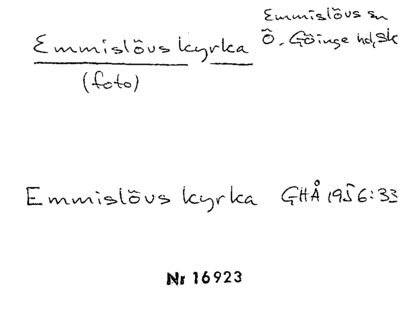 Emmislövs kyrka
(foto)
Emmislövs sn
Ö. Göinge hd, Sk
Emmislövs kyrka GHÅ 1956:33
Nr 16923